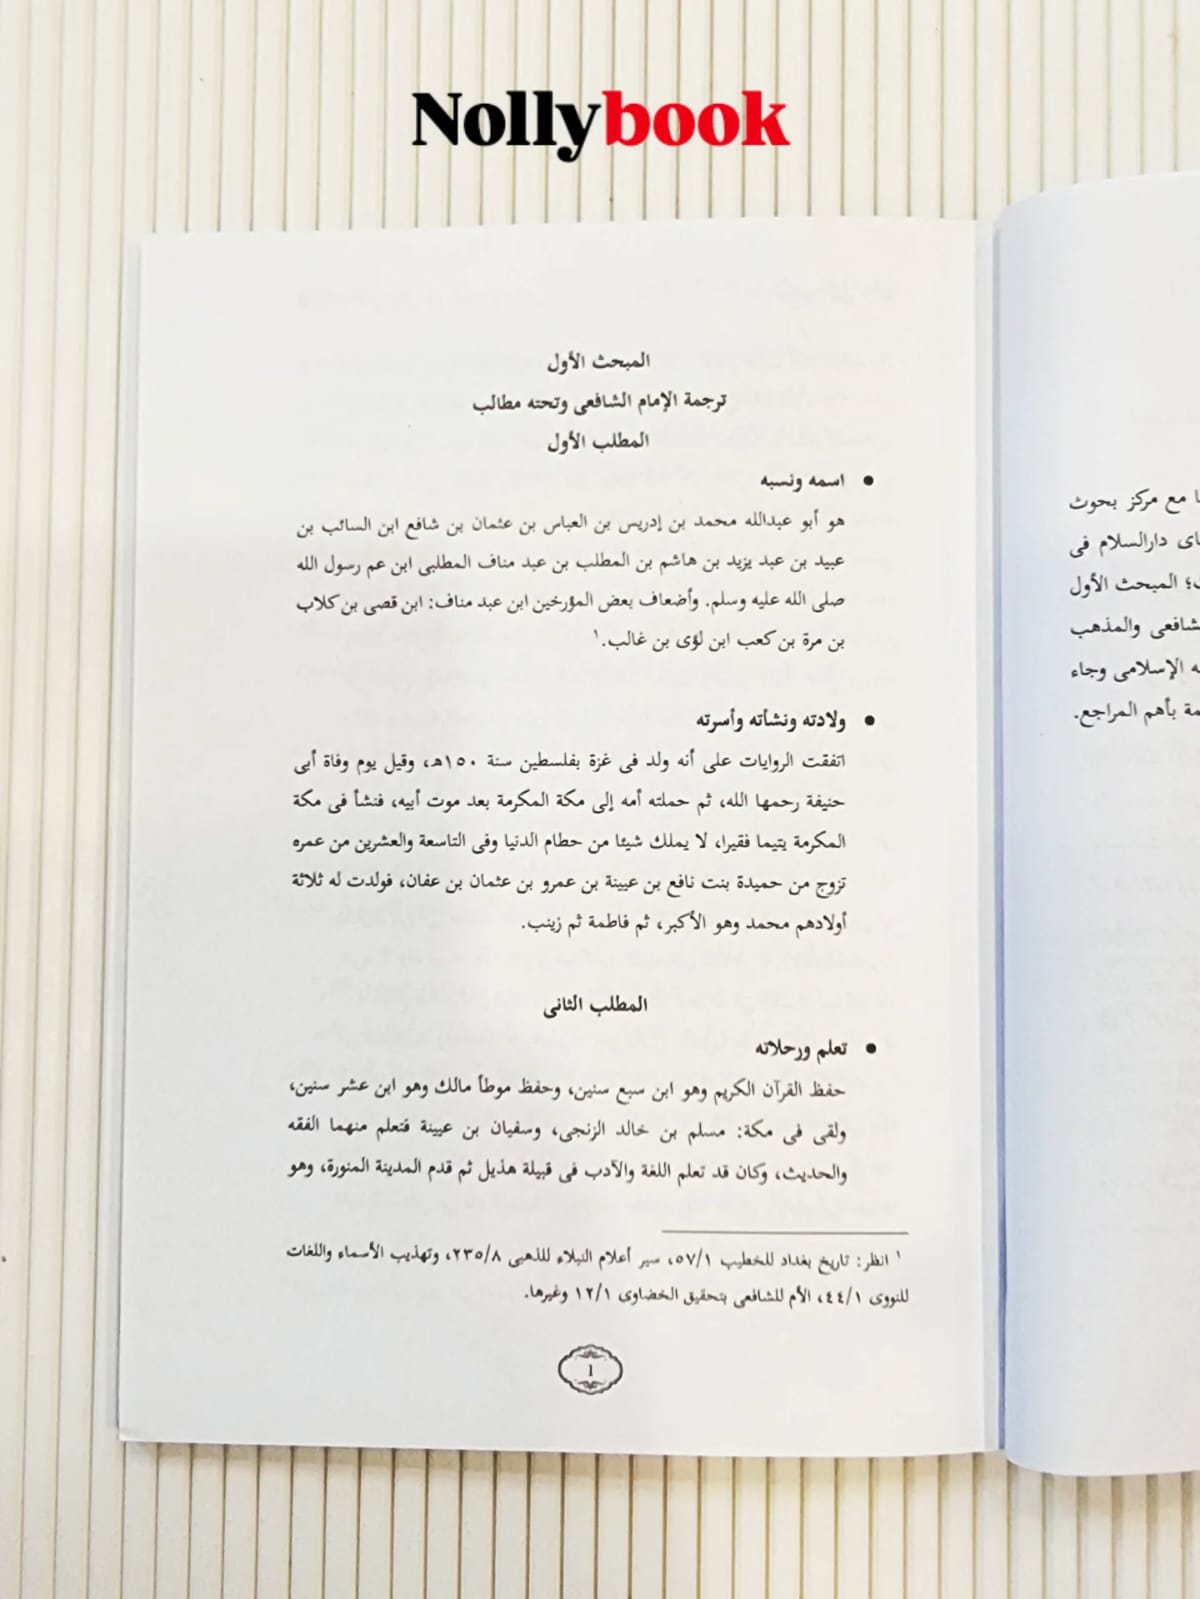 Nollybook
المبحث الأول
ترجمة الإمام الشافعى وتحته مطالب
المطلب الأول
• اسمه ونسبه
هو أبو عبدالله محمد بن إدريس بن العباس بن عثمان بن شافع ابن السائب بن
عبيد بن عبد يزيد بن هاشم بن المطلب بن عبد مناف المطلبى ابن عم رسول الله
صلى الله عليه وسلم. وأضعاف بعض المؤرخين ابن عبد مناف: ابن قصى بن كلاب
بن مرة بن كعب ابن لؤى بن غالب.١
• ولادته ونشأته وأسرته
اتفقت الروايات على أنه ولد فى غزة بفلسطين سنة ١٥٠هـ، وقيل يوم وفاة أبى
حنيفة رحمها الله، ثم حملته أمه إلى مكة المكرمة بعد موت أبيه، فنشأ فى مكة
المكرمة يتيما فقيرا، لا يملك شيئا من حطام الدنيا وفى التاسعة والعشرين من عمره
تزوج من حميدة بنت نافع بن عيينة بن عمرو بن عثمان بن عفان، فولدت له ثلاثة
أولادهم محمد وهو الأكبر، ثم فاطمة ثم زينب.
المطلب الثانى
• تعلم ورحلاته
حفظ القرآن الكريم وهو ابن سبع سنين، وحفظ موطأ مالك وهو ابن عشر سنين،
ولقى فى مكة: مسلم بن خالد الزنجى، وسفيان بن عيينة فتعلم منهما الفقه
والحديث، وكان قد تعلم اللغة والآدب فى قبيلة هذيل ثم قدم المدينة المنورة، وهو
١ انظر: تاريخ بغداد للخطيب ٥٧/١، سير أعلام النبلاء للذهبى ٢٣٥/٨، وتهذيب الأسماء واللغات
للنووى ٤٤/١، الأم للشافعى بتحقيق الخضاوى ١٢/١ وغيرها.
١
مع مركز بحوث
دارالسلام فى
المبحث الأول
والمذهب
الإسلامى وجاء
بأهم المراجع.